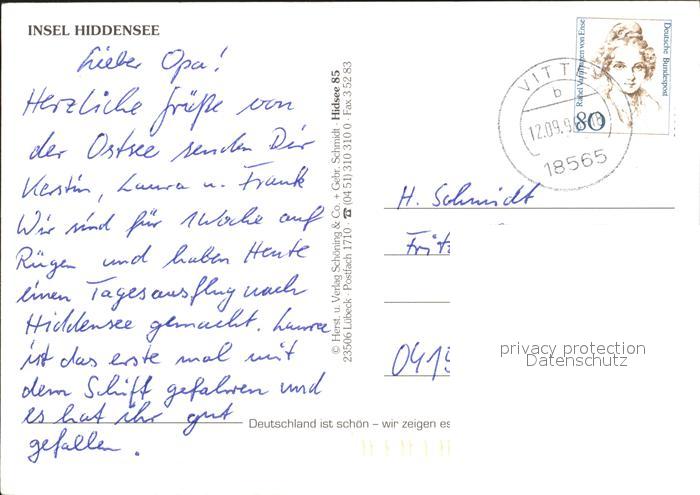 INSEL HIDDENSEE
Lieber Opa!
Herzliche Grüße von
der Ostsee senden Dir
Kerstin, Laura u. Frank
Wir sind für 1 Woche auf
Rügen und haben Heute
einen Tagesausflug nach
Hiddensee gemacht. Laura
ist das erste mal mit
dem Schiff gefahren und
es hat ihr gut
gefallen.
© Herst. u. Verlag Schöning & Co. + Gebr. Schmidt · Hidsee 85
23506 Lübeck · Postfach 1710 · ☎ (04 51) 310 310 0 · Fax 3 52 83
Deutschland ist schön – wir zeigen es
Rahel Varnhagen von Ense
Deutsche Bundespost
80
VITT
b
12.09.9
18
18565
H. Schmidt
Fritz
0419
privacy protection
Datenschutz